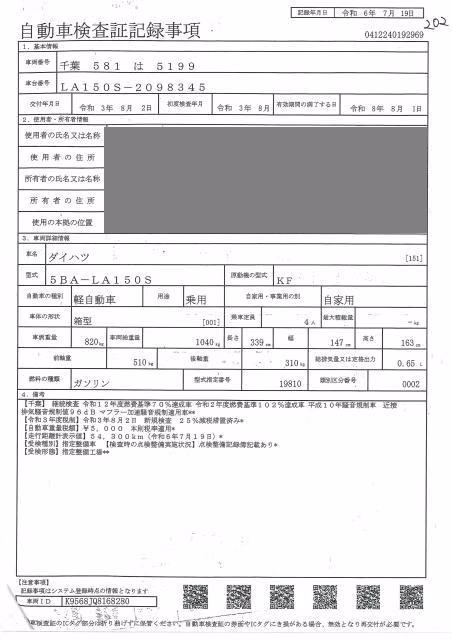 記録年月日 令和 6年 7月 19日
202
自動車検査証記録事項
0412240192969
1. 基本情報
車両番号 千葉 581 は 5199
車台番号 LA150S-2098345
交付年月日 令和 3年 8月 2日 初度検査年月 令和 3年 8月 有効期間の満了する日 令和 8年 8月 1日
2. 使用者・所有者情報
使用者の氏名又は名称
使用者の住所
所有者の氏名又は名称
所有者の住所
使用の本拠の位置
3. 車両詳細情報
車名 ダイハツ [151]
型式 5BA-LA150S 原動機の型式 KF
自動車の種別 軽自動車 用途 乗用 自家用・事業用の別 自家用
車体の形状 箱型 [001] 乗車定員 4人 最大積載量 -kg
車両重量 820kg 車両総重量 1040kg 長さ 339cm 幅 147cm 高さ 163cm
前軸重 510kg 後軸重 310kg 総排気量又は定格出力 0.65 L
燃料の種類 ガソリン 型式指定番号 19810 類別区分番号 0002
4. 備考
【千葉】 継続検査 令和12年度燃費基準70%達成車 令和2年度燃費基準102%達成車 平成10年騒音規制車 近接
排気騒音規制値96dB マフラー加速騒音規制適用車**
【令和3年度税制】令和3年8月2日 新規検査 25%減税措置済み*
【自動車重量税額】¥5,000 本則税率適用*
【走行距離計表示値】54,300km (令和6年7月19日)*
【受検種別】指定整備車 【検査時の点検整備実施状況】点検整備記録簿記載あり*
【受検形態】指定整備工場**
【注意事項】
記載事項はシステム登録時点の情報となります
車両ID K9568JQ8168280
車検査証のICタグ部分は折り曲げずに保管ください。自動車検査証の券面やICタグにき損がある場合、無効となり再交付が必要です。